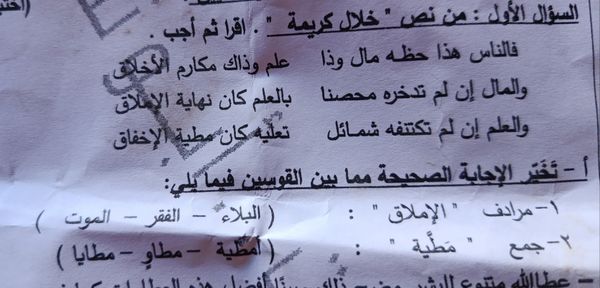 السؤال الأول : من نص " خلال كريمة " . اقرا ثم أجب .
فالناس هذا حظه مال وذا علم وذاك مكارم الأخلاق
والمال إن لم تدخره محصنا بالعلم كان نهاية الإملاق
والعلم إن لم تكتنفه شمائل تعليه كان مطية الإخفاق
أ - تَخَيَّر الإجابة الصحيحة مما بين القوسين فيما يلي:
١- مرادف " الإملاق " : ( البلاء – الفقر – الموت )
٢- جمع " مَطِيَّة " : ( أمطية – مطاوٍ – مطايا )